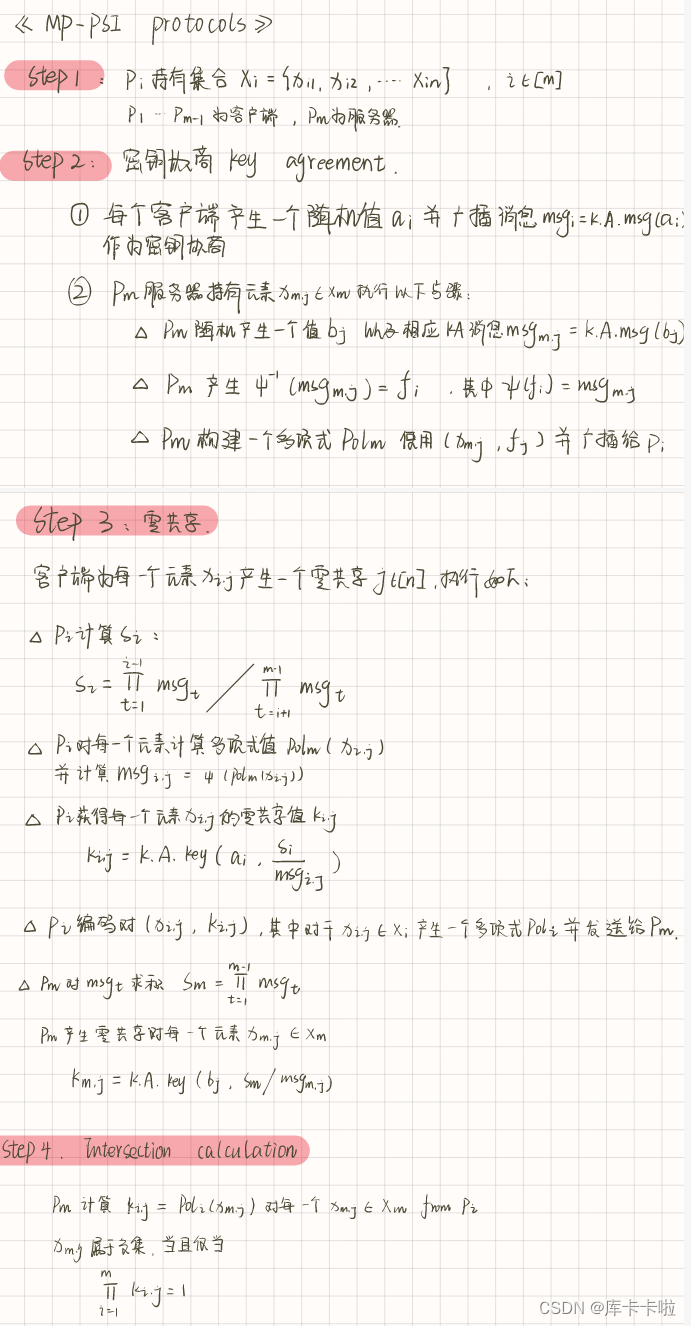 《 MP-PSI protocols 》
Step 1 : Pi 持有集合 Xi = {xi1, xi2, ... xin} , i∈[m]
P1 ... Pm-1 为客户端 , Pm为服务器.
Step 2: 密钥协商 key agreement.
① 每个客户端产生一个随机值 ai 并广播消息 msgi = K.A.msg(ai)
作为密钥协商
② Pm 服务器持有元素 xm,j ∈ Xm 执行以下步骤:
△ Pm 随机产生一个值 bj 以及相应 KA 消息 msgm,j = K.A.msg(bj)
△ Pm 产生 ψ⁻¹(msgm,j) = fi , 其中 ψ(fi) = msgm,j
△ Pm 构建一个多项式 Polm 使用 (xm,j , fj) 并广播给 Pi
Step 3 : 零共享.
客户端为每一个元素 xi,j 产生一个零共享 j∈[n] , 执行如下:
△ Pi 计算 Si :
Si = ∏_{t=1}^{i-1} msgt / ∏_{t=i+1}^{m-1} msgt
△ Pi 对每一个元素计算多项式值 Polm(xi,j)
并计算 msgi,j = ψ(Polm(xi,j))
△ Pi 获得每一个元素 xi,j 的零共享值 ki,j
ki,j = K.A.key(ai , Si/msgi,j)
△ Pi 编码对 (xi,j , ki,j) , 其中对于 xi,j ∈ Xi 产生一个多项式 Poli 并发送给 Pm.
△ Pm 对 msgt 求积 Sm = ∏_{t=1}^{m-1} msgt
Pm 产生零共享对每一个元素 xm,j ∈ Xm
km,j = K.A.key(bj , Sm/msgm,j)
Step 4. Intersection calculation
Pm 计算 ki,j = Poli(xm,j) 对每一个 xm,j ∈ Xm from Pi
xm,j 属于交集, 当且仅当
∏_{i=1}^{m} ki,j = 1
CSDN @库卡卡啦